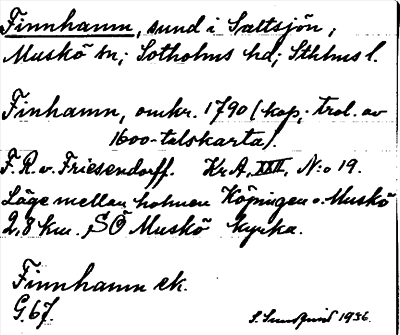 Finnhamn, sund i Saltsjön,
Muskö sn; Sotholms hd; Sthlms l.
Finhamn, omkr. 1790 (kop. trol. av
1600-talskarta).
F. R. v. Friesendorff. Kr A, XXII, N:o 19.
Läge mellan holmen Köpingen o. Muskö
2,8 km SÖ Muskö kyrka.
Finnhamn ek.
G. 67. S. Lundqvist 1936.